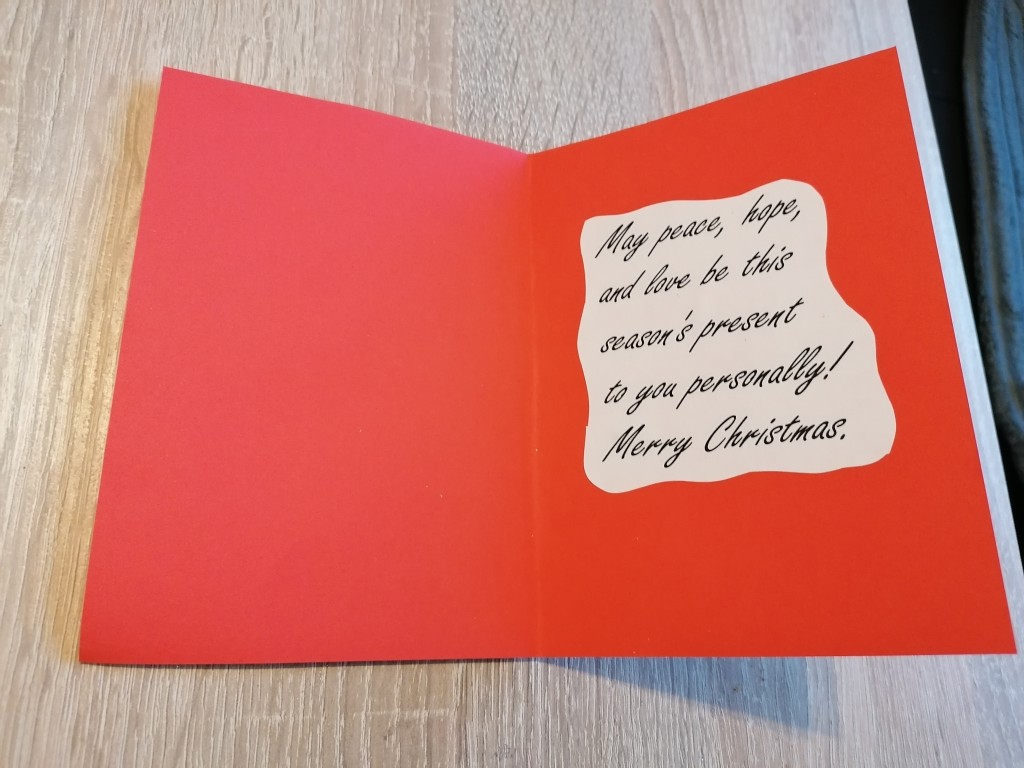 May peace, hope,
and love be this
season's present
to you personally!
Merry Christmas.